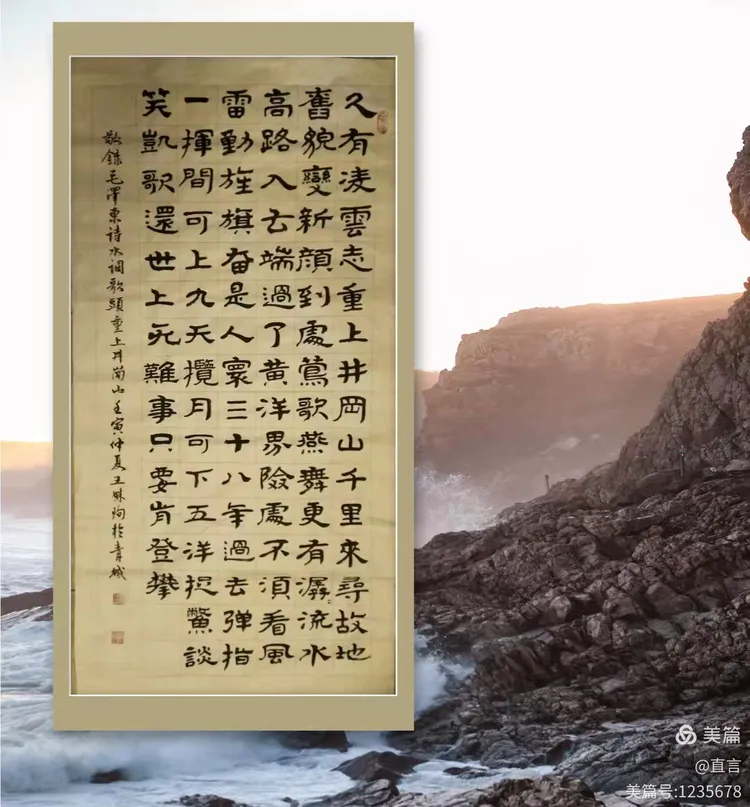 久有凌雲志重上井岡山千里來尋故地
舊貌變新顏到處鶯歌燕舞更有潺〻流水
高路入云端過了黃洋界險處不須看風
雷動旌旗奋是人寰三十八年過去弹指
一揮間可上九天攬月可下五洋捉鱉談
笑凱歌還世上无難事只要肯登攀
敬錄毛澤東诗水调歌頭重上井崗山壬寅仲夏王於青城
美篇
@直言
美篇号:1235678